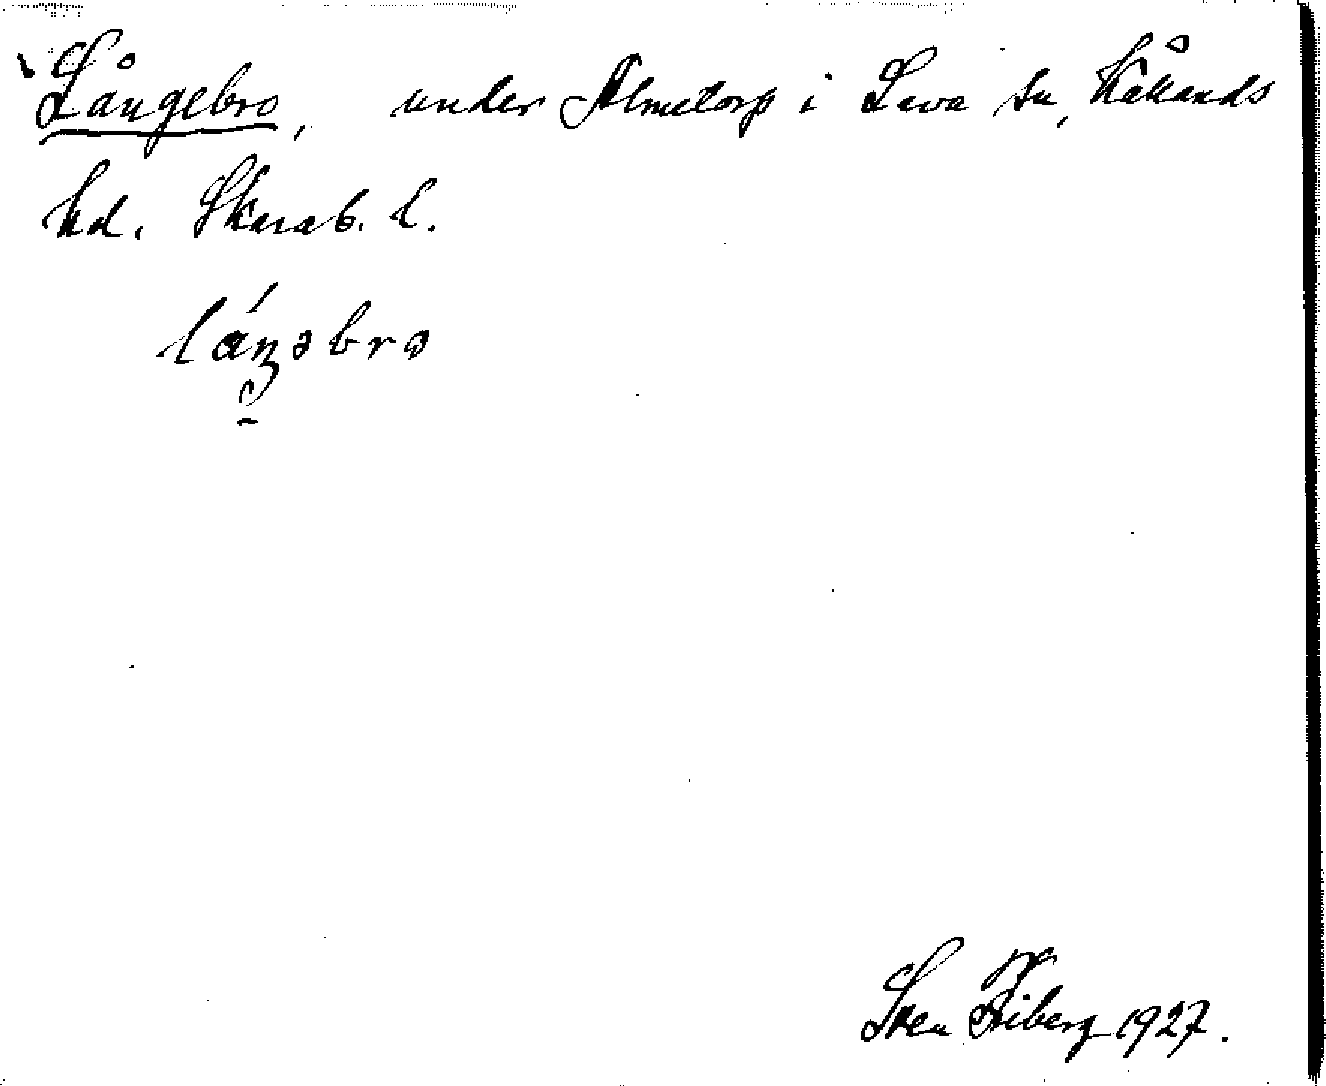 Långebro, under Almetorp i Lava sn, Kållands
hd. Skarab. l.
láŋəbrə
Sven Fiberg 1927.